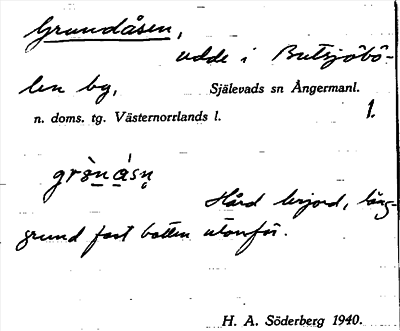 Grundåsen,
udde i Butsjöbö-
len by,
Själevads sn Ångermanl.
n. doms. tg. Västernorrlands l. 1.
Hård lerjord, lång-
grund fast botten utanför.
H. A. Söderberg 1940.